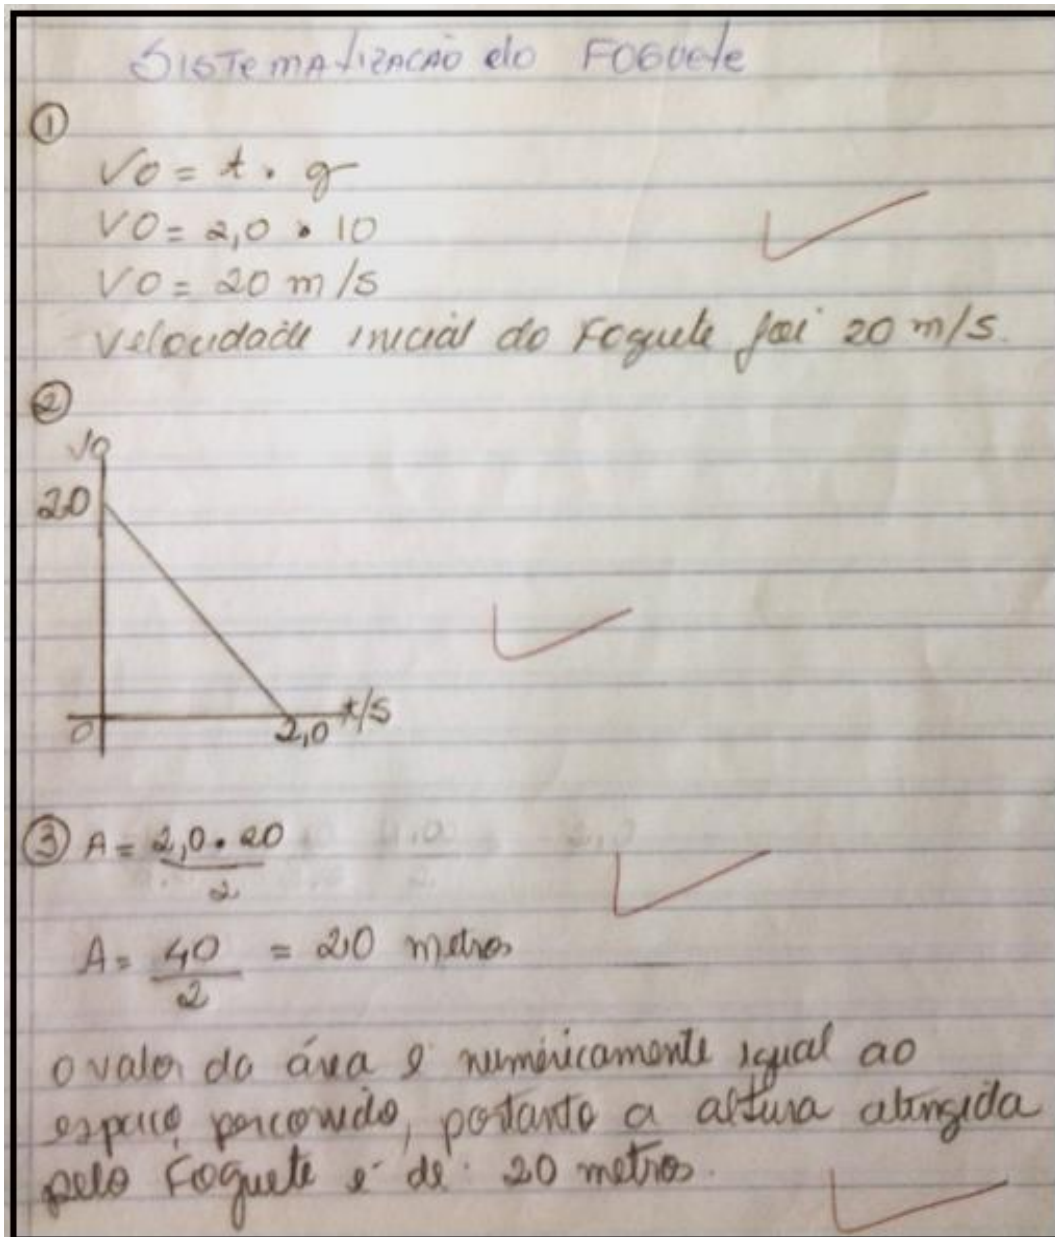 SISTEMATIZAÇÃO do FOGUETE
①
V0 = t . g
V0 = 2,0 . 10
V0 = 20 m/s
Velocidade inicial do Foguete foi 20 m/s.
②
V0
20
0 2,0 t/s
③ A = 2,0 . 20
2
A = 40 = 20 metros
2
o valor da área é numéricamente igual ao
espaço percorrido, portanto a altura atingida
pelo Foguete é de 20 metros.